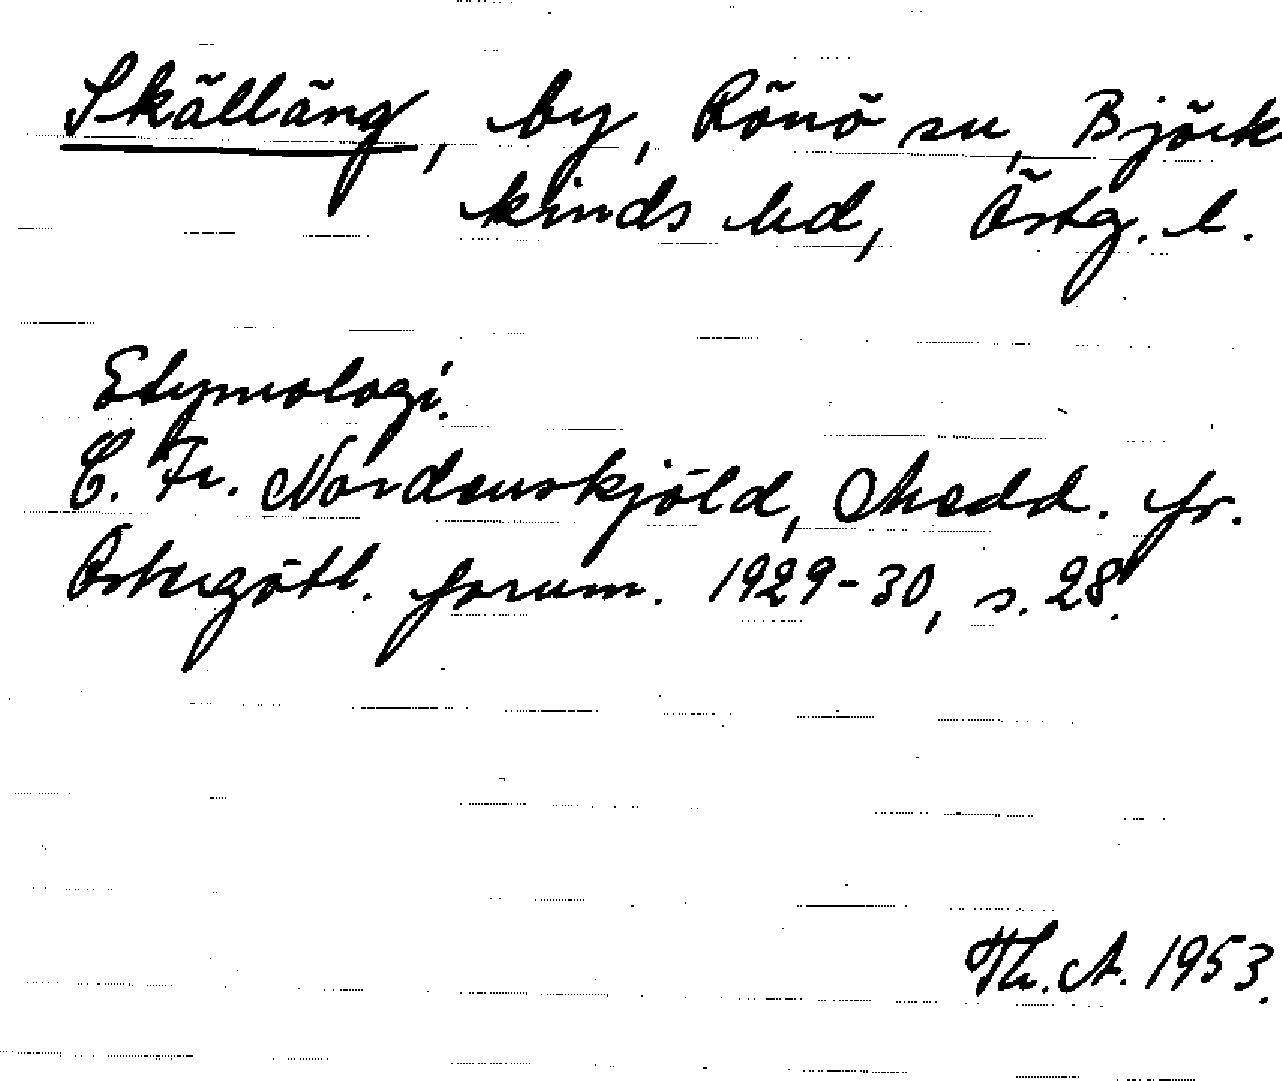 Skälläng, by, Rönö sn, Björk
kinds hd, Östg. l.
Etymologi.
C. Fr. Nordenskjöld, Medd. fr.
Östergötl. fornm. 1929-30, s. 28.
Th. A. 1953.